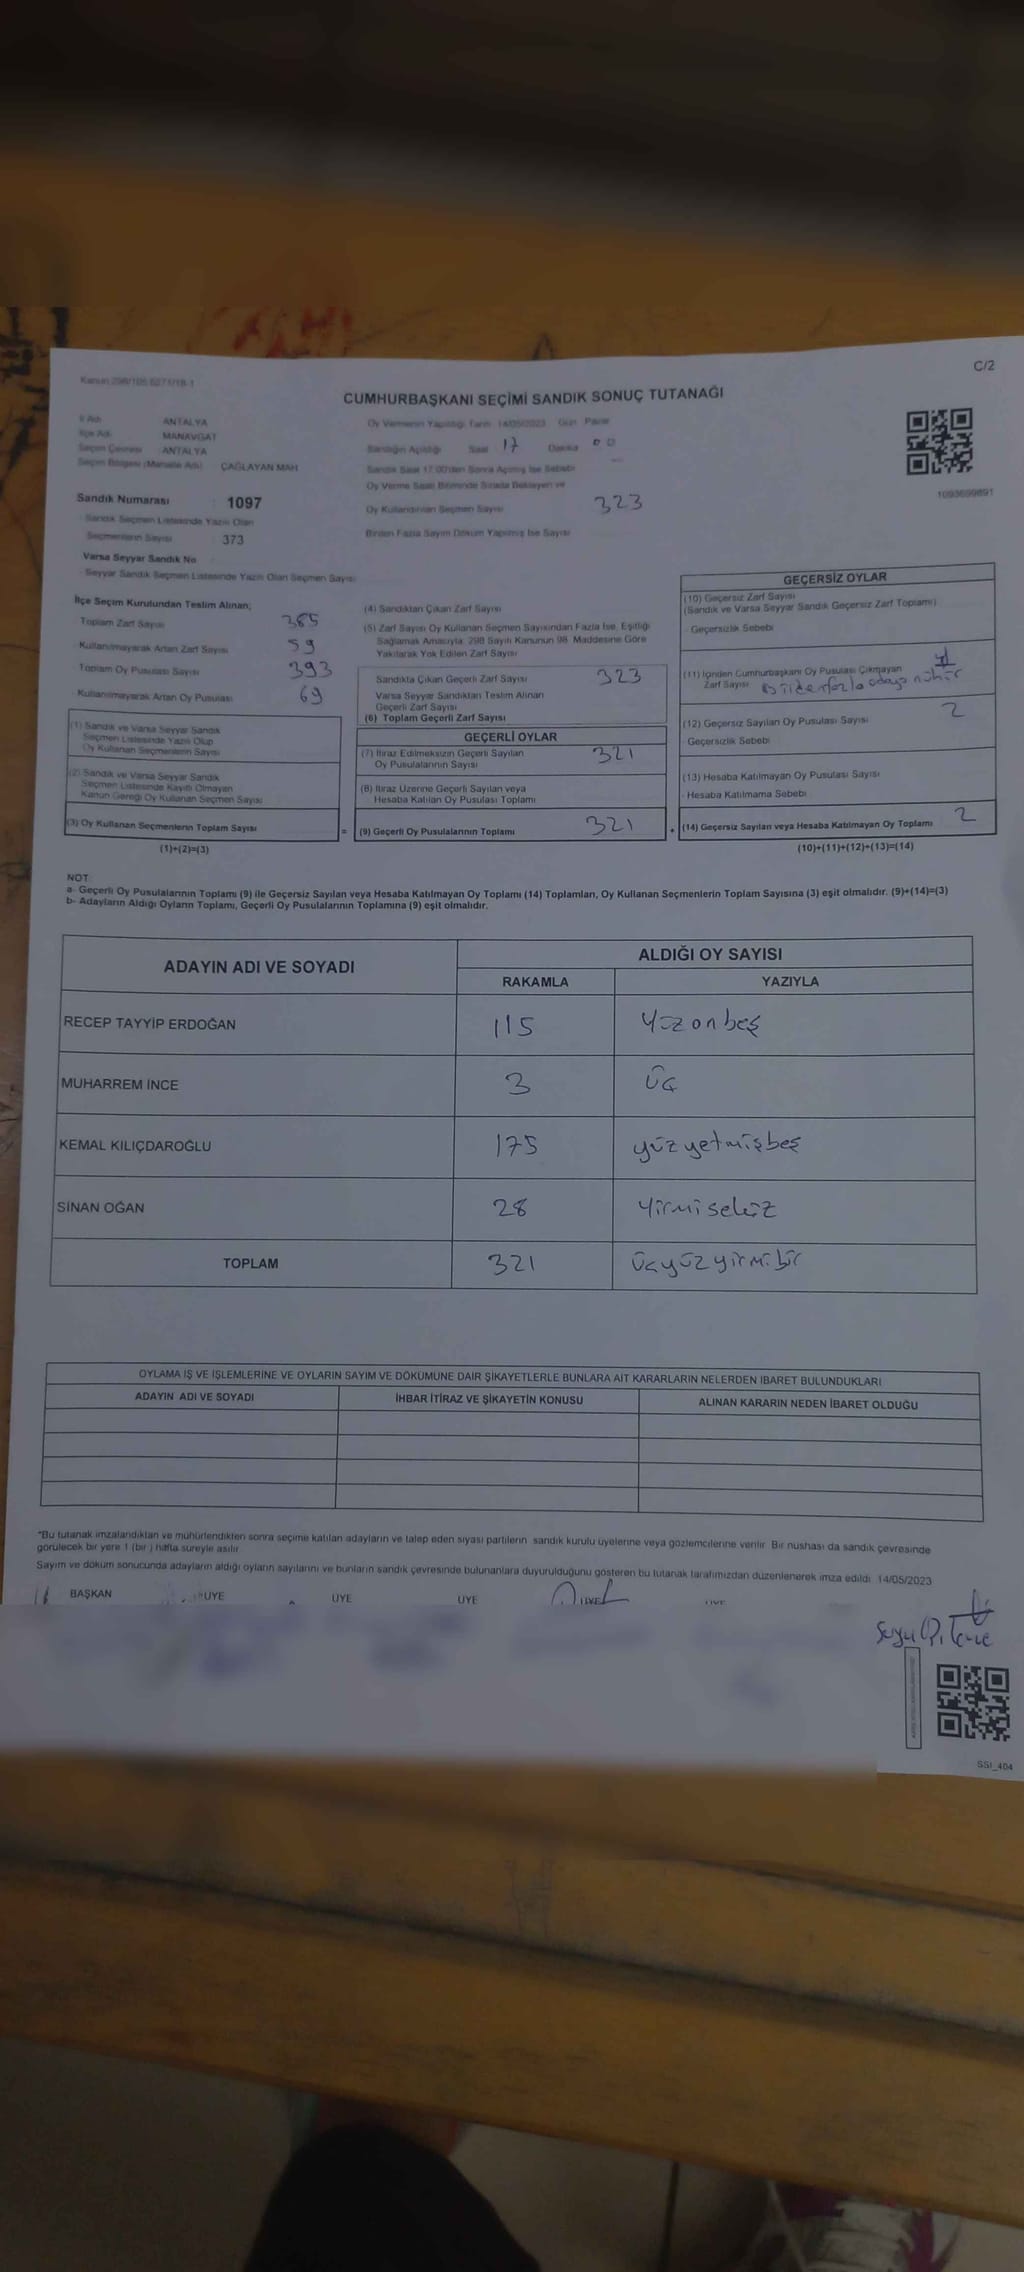 Kanun 298/105 6271/18-1
C/2
CUMHURBAŞKANI SEÇİMİ SANDIK SONUÇ TUTANAĞI
İl Adı ANTALYA
İlçe Adı MANAVGAT
Seçim Çevresi ANTALYA
Seçim Bölgesi (Mahalle Adı) ÇAĞLAYAN MAH
Sandık Numarası 1097
Sandık Seçmen Listesinde Yazılı Olan
Seçmenlerin Sayısı 373
Varsa Seyyar Sandık No
Seyyar Sandık Seçmen Listesinde Yazılı Olan Seçmen Sayısı
Oy Vermenin Yapıldığı Tarih 14/05/2023 Gün Pazar
Sandığın Açıldığı Saat 17 Dakika 00
Sandık Saat 17:00'den Sonra Açılmış İse Sebebi
Oy Verme Saati Bitiminde Sırada Bekleyen ve
Oy Kullandırılan Seçmen Sayısı 323
Birden Fazla Sayım Döküm Yapılmış İse Sayısı
1093699891
İlçe Seçim Kurulundan Teslim Alınan;
Toplam Zarf Sayısı 385
Kullanılmayarak Artan Zarf Sayısı 59
Toplam Oy Pusulası Sayısı 393
Kullanılmayarak Artan Oy Pusulası 69
(1) Sandık ve Varsa Seyyar Sandık
Seçmen Listesinde Yazılı Olup
Oy Kullanan Seçmenlerin Sayısı
(2) Sandık ve Varsa Seyyar Sandık
Seçmen Listesinde Kayıtlı Olmayan
Kanun Gereği Oy Kullanan Seçmen Sayısı
(3) Oy Kullanan Seçmenlerin Toplam Sayısı
(1)+(2)=(3)
=
(4) Sandıktan Çıkan Zarf Sayısı
(5) Zarf Sayısı Oy Kullanan Seçmen Sayısından Fazla İse, Eşitliği
Sağlamak Amacıyla, 298 Sayılı Kanunun 98. Maddesine Göre
Yakılarak Yok Edilen Zarf Sayısı
Sandıkta Çıkan Geçerli Zarf Sayısı 323
Varsa Seyyar Sandıktan Teslim Alınan
Geçerli Zarf Sayısı
(6) Toplam Geçerli Zarf Sayısı
GEÇERLİ OYLAR
(7) İtiraz Edilmeksizin Geçerli Sayılan
Oy Pusulalarının Sayısı 321
(8) İtiraz Üzerine Geçerli Sayılan veya
Hesaba Katılan Oy Pusulası Toplamı
(9) Geçerli Oy Pusulalarının Toplamı 321
+
GEÇERSİZ OYLAR
(10) Geçersiz Zarf Sayısı
(Sandık ve Varsa Seyyar Sandık Geçersiz Zarf Toplamı)
- Geçersizlik Sebebi
(11) İçinden Cumhurbaşkanı Oy Pusulası Çıkmayan
Zarf Sayısı Birden fazla adaya mühür
(12) Geçersiz Sayılan Oy Pusulası Sayısı 2
Geçersizlik Sebebi
(13) Hesaba Katılmayan Oy Pusulası Sayısı
- Hesaba Katılmama Sebebi
(14) Geçersiz Sayılan veya Hesaba Katılmayan Oy Toplamı 2
(10)+(11)+(12)+(13)=(14)
NOT:
a- Geçerli Oy Pusulalarının Toplamı (9) ile Geçersiz Sayılan veya Hesaba Katılmayan Oy Toplamı (14) Toplamları, Oy Kullanan Seçmenlerin Toplam Sayısına (3) eşit olmalıdır. (9)+(14)=(3)
b- Adayların Aldığı Oyların Toplamı, Geçerli Oy Pusulalarının Toplamına (9) eşit olmalıdır.
ADAYIN ADI VE SOYADI ALDIĞI OY SAYISI
RAKAMLA YAZIYLA
RECEP TAYYİP ERDOĞAN 115 Yüzonbeş
MUHARREM İNCE 3 Üç
KEMAL KILIÇDAROĞLU 175 yüzyetmişbeş
SİNAN OĞAN 28 Yirmisekiz
TOPLAM 321 Üçyüzyirmibir
OYLAMA İŞ VE İŞLEMLERİNE VE OYLARIN SAYIM VE DÖKÜMÜNE DAİR ŞİKAYETLERLE BUNLARA AİT KARARLARIN NELERDEN İBARET BULUNDUKLARI
ADAYIN ADI VE SOYADI İHBAR İTİRAZ VE ŞİKAYETİN KONUSU ALINAN KARARIN NEDEN İBARET OLDUĞU
*Bu tutanak imzalandıktan ve mühürlendikten sonra seçime katılan adayların ve talep eden siyasi partilerin sandık kurulu üyelerine veya gözlemcilerine verilir. Bir nüshası da sandık çevresinde
görülecek bir yere 1 (bir) hafta süreyle asılır.
Sayım ve döküm sonucunda adayların aldığı oyların sayılarını ve bunların sandık çevresinde bulunanlara duyurulduğunu gösteren bu tutanak tarafımızdan düzenlenerek imza edildi. 14/05/2023
BAŞKAN ÜYE ÜYE ÜYE ÜYE ÜYE
SSI_404